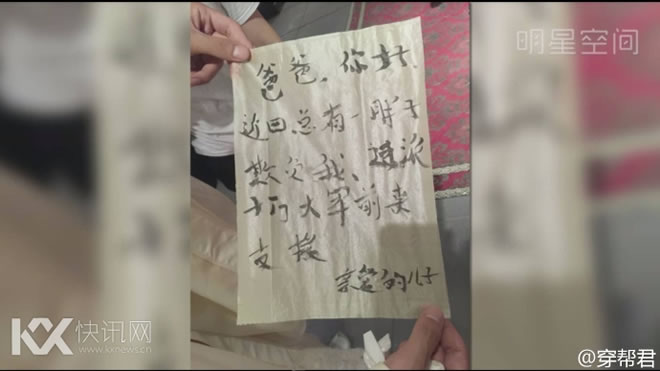 明星空间
爸爸，你好
近日总有一胖子
欺负我、速派
十万大军前来
支援
亲爱的儿子
KX 快讯网
www.kxnews.cn
@穿帮君